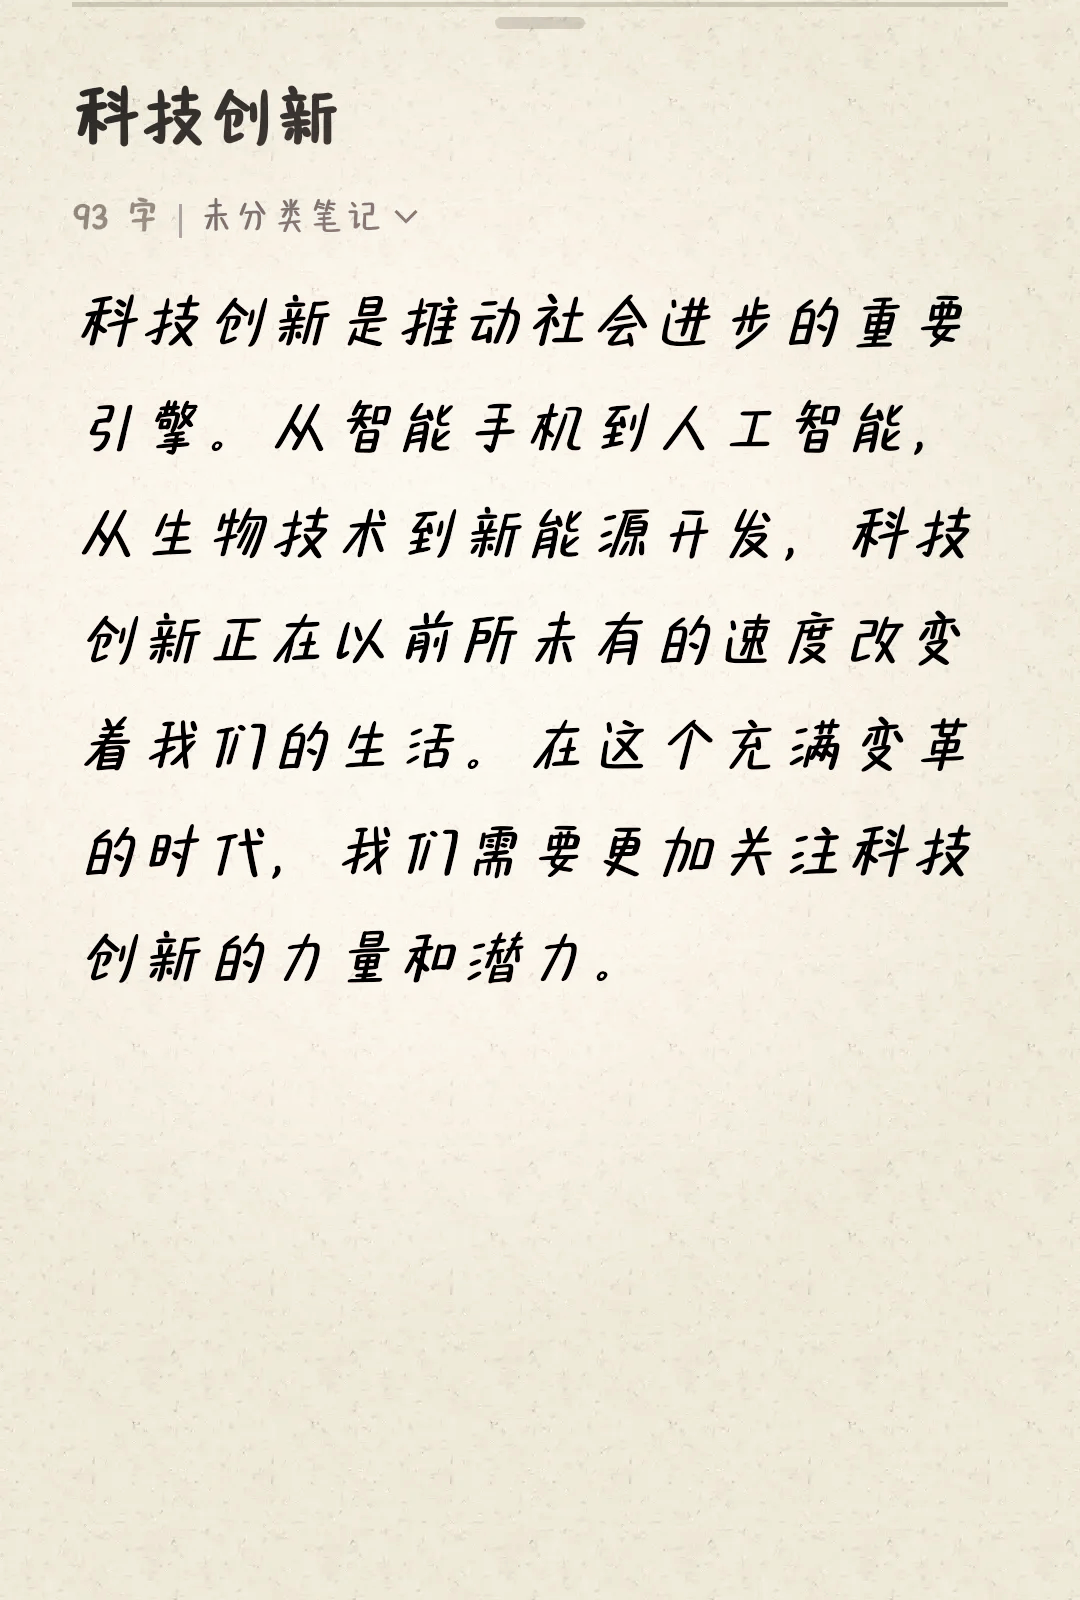 科技创新
93 字 | 未分类笔记
科技创新是推动社会进步的重要
引擎。从智能手机到人工智能，
从生物技术到新能源开发，科技
创新正在以前所未有的速度改变
着我们的生活。在这个充满变革
的时代，我们需要更加关注科技
创新的力量和潜力。